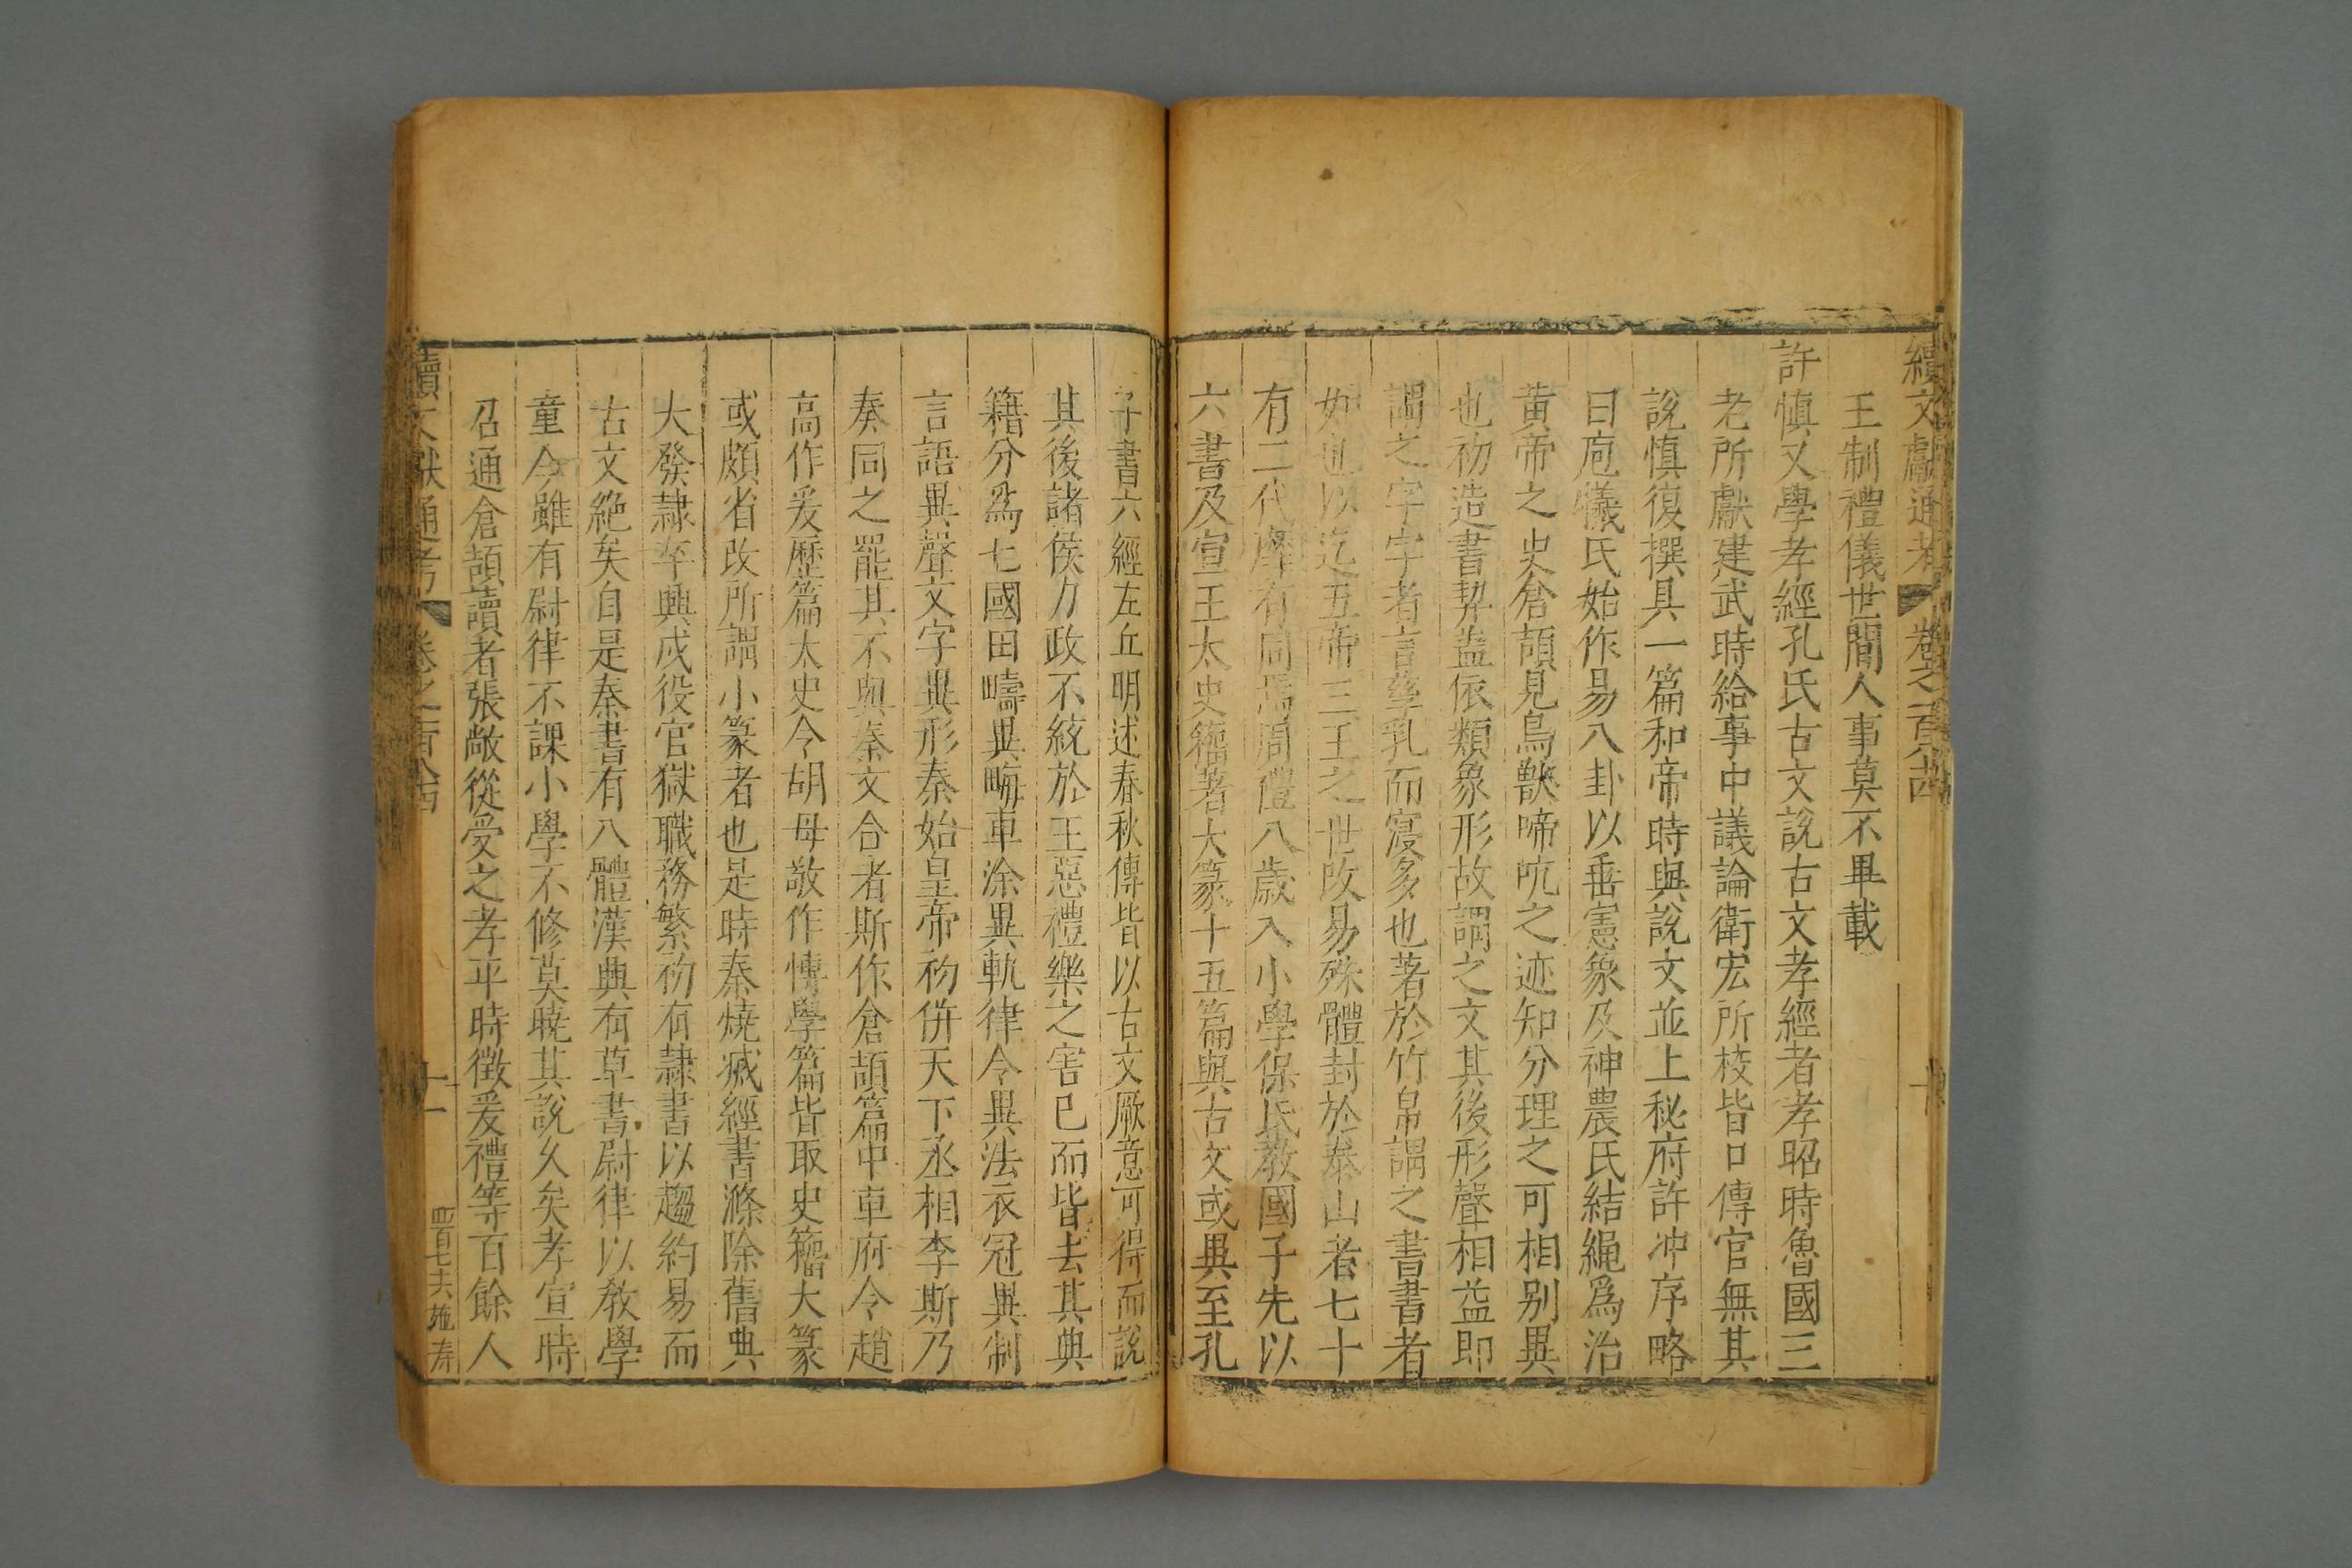 續文獻通考 卷之一百八十四 十
王制禮儀世間人事莫不畢載
許慎又學孝經孔氏古文說古文孝經者孝昭時魯國三
老所獻建武時給事中議論衛宏所校皆口傳官無其
說慎復撰具一篇和帝時與說文並上秘府許冲序略
曰庖犧氏始作易八卦以垂憲象及神農氏結繩爲治
黃帝之史倉頡見鳥獸啼吭之迹知分理之可相別異
也初造書契蓋依類象形故謂之文其後形聲相益即
謂之字字者言孳乳而寖多也著於竹帛謂之書書者
如也以迄五帝三王之世改易殊體封於泰山者七十
有二代靡有同焉周禮八歲入小學保氏教國子先以
六書及宣王太史籀著大篆十五篇與古文或異至孔
子書六經左丘明述春秋傳皆以古文厥意可得而說
其後諸侯力政不統於王惡禮樂之害已而皆去其典
籍分爲七國田疇異畮車涂異軌律令異法衣冠異制
言語異聲文字異形秦始皇帝初倂天下丞相李斯乃
奏同之罷其不與秦文合者斯作倉頡篇中車府令趙
高作爰歷篇太史令胡母敬作愽學篇皆取史籀大篆
或頗省改所謂小篆者也是時秦燒烕經書滌除舊典
大發隷卒興戍役官獄職務繁初有隷書以趨約易而
古文絕矣自是秦書有八體漢興有草書尉律以教學
童今雖有尉律不課小學不修莫曉其說久矣孝宣時
召通倉頡讀者張敞從受之孝平時徵爰禮等百餘人
續文獻通考 卷之一百八十四 十一